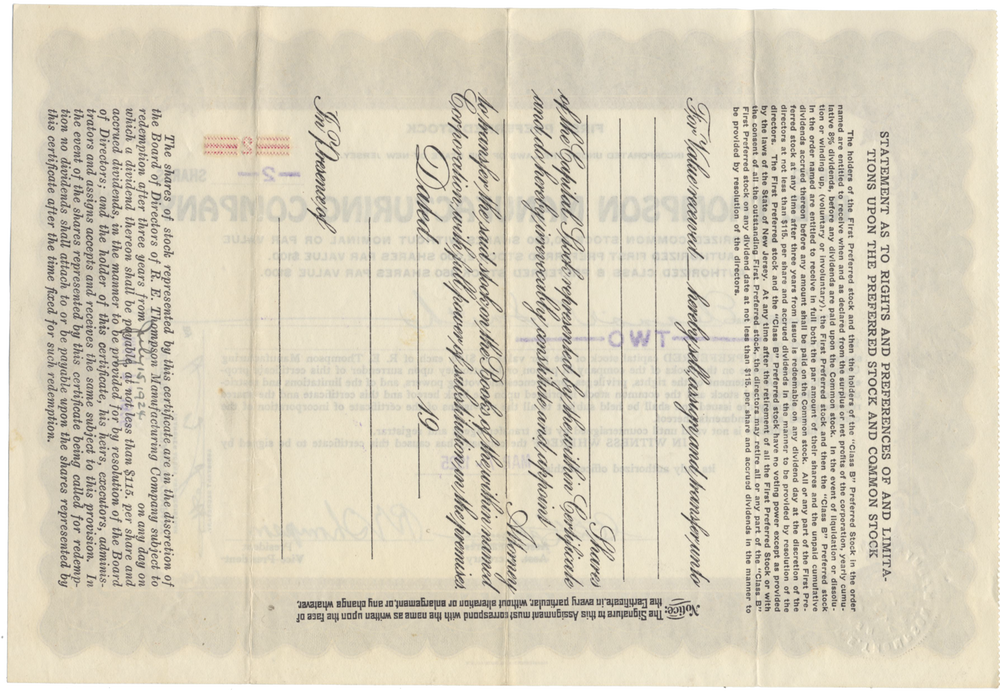 STATEMENT AS TO RIGHTS AND PREFERENCES OF AND LIMITA-
TIONS UPON THE PREFERRED STOCK AND COMMON STOCK
The holders of the First Preferred stock and then the holders of the "Class B" Preferred Stock in the order
named are entitled to receive when and as declared from the surplus or net profits of the corporation, yearly cumu-
lative 8% dividends, before any dividends are paid upon the Common stock. In the event of liquidation or dissolu-
tion or winding up, (voluntary or involuntary), the First Preferred stock and then the "Class B" Preferred stock
in the order named are entitled to receive in full both the par amount of their shares and the unpaid cumulative
dividends accrued thereon before any amount shall be paid to the Common stock. All or any part of the First Pre-
ferred stock at any time after three years from issue is redeemable on any dividend day at the discretion of the
directors at not less than $115. per share and accrued dividends in the manner to be provided by resolution of the
directors. The First Preferred stock and the "Class B" Preferred stock have no voting power except as provided
by the laws of the State of New Jersey. At any time after the retirement of all the First Preferred Stock or with
the consent of all the outstanding First Preferred stock, the directors may retire all or any part of the "Class B"
First Preferred stock on any dividend date at not less than $115. per share and accrued dividends in the manner to
be provided by resolution of the directors.
For Value received hereby sell, assign, and transfer unto
Shares
of the Capital Stock represented by the within Certificate
and do hereby irrevocably constitute and appoint
Attorney
to transfer the said stock on the Books of the within named
Corporation, with full power of substitution in the premises.
Dated 19
In Presence of
Notice: The Signature to this Assignment must correspond with the name as written upon the face of
the Certificate, in every particular, without alteration or enlargement, or any change whatever.
The shares of stock represented by this certificate are in the discretion of
the Board of Directors of R. E. Thompson Manufacturing Company subject to
redemption after three years from on any day on
which a dividend thereon shall be payable, at not less than $115. per share and
accrued dividends, in the manner to be provided for by resolution of the Board
of Directors; and the holder of this certificate, his heirs, executors, adminis-
trators and assigns accepts and receives the same subject to this provision. In
the event of the shares represented by this certificate being called for redemp-
tion no dividends shall attach to or be payable upon the shares represented by
this certificate after the time fixed for such redemption.